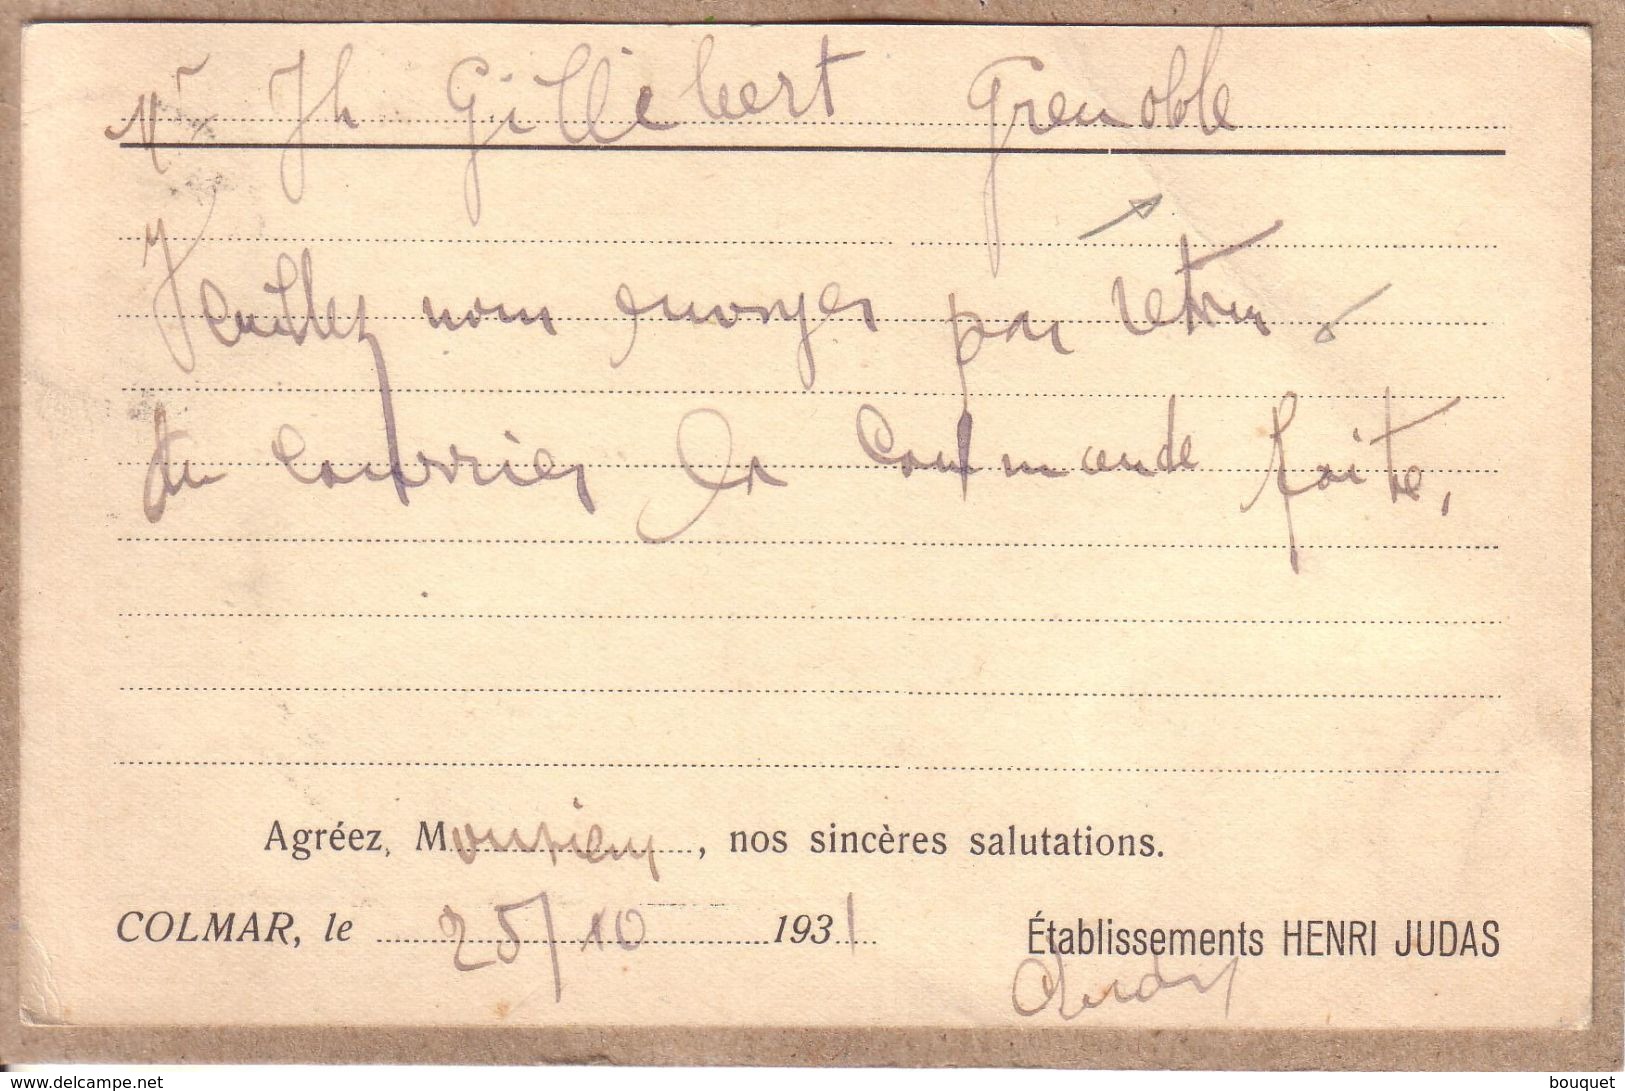 Mr Jh Gillibert Grenoble
Veuillez nous envoyer par retour
du courrier la commande faite.
Agréez, Monsieur, nos sincères salutations.
COLMAR, le 25/10 1931
Établissements HENRI JUDAS
www.delcampe.net
bouquet